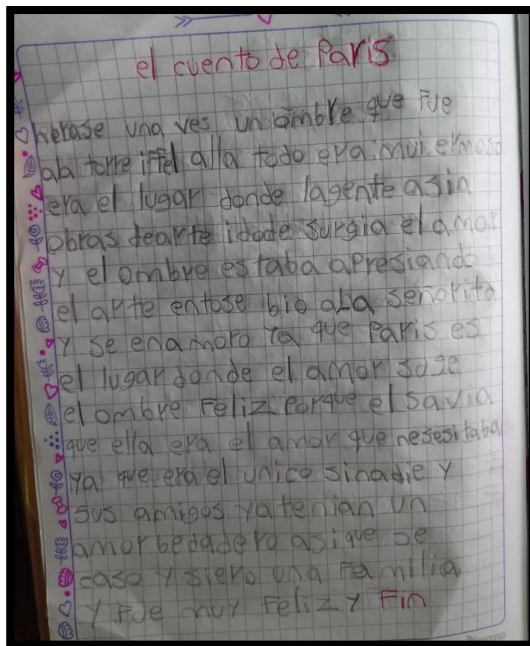 el cuento de Paris
herase una ves un ombre que fue
ala torre iffel alla todo era mui ermoso
era el lugar donde lagente asia
obras dearte idode surgia el amor
y el ombre estaba apresiando
el arte entose bio ala señorita
y se enamoro ya que Paris es
el lugar donde el amor suge
el ombre Feliz Porque el savia
que ella era el amor que nesesitaba
ya que era el unico sinadie y
sus amigos yatenian un
amor bedadero asique se
caso y siero una Familia
y Fue muy Feliz y Fin